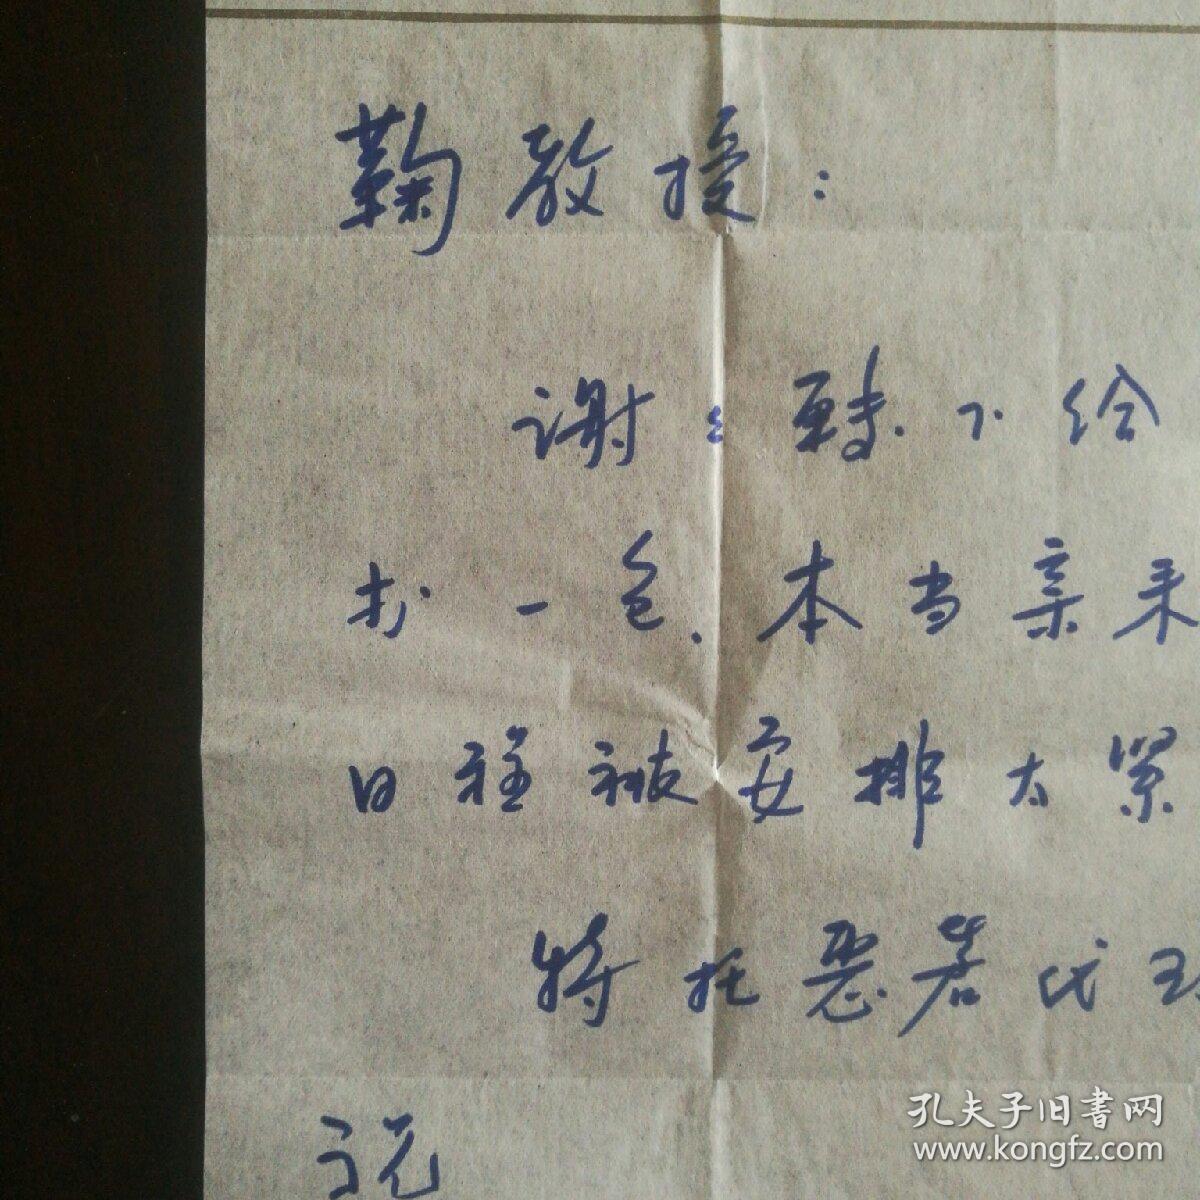 鞠教授：
谢谢 下给
一包、本当亲来
日程被安排太紧
特托恩若代
祝
孔夫子旧書网
www.kongfz.com